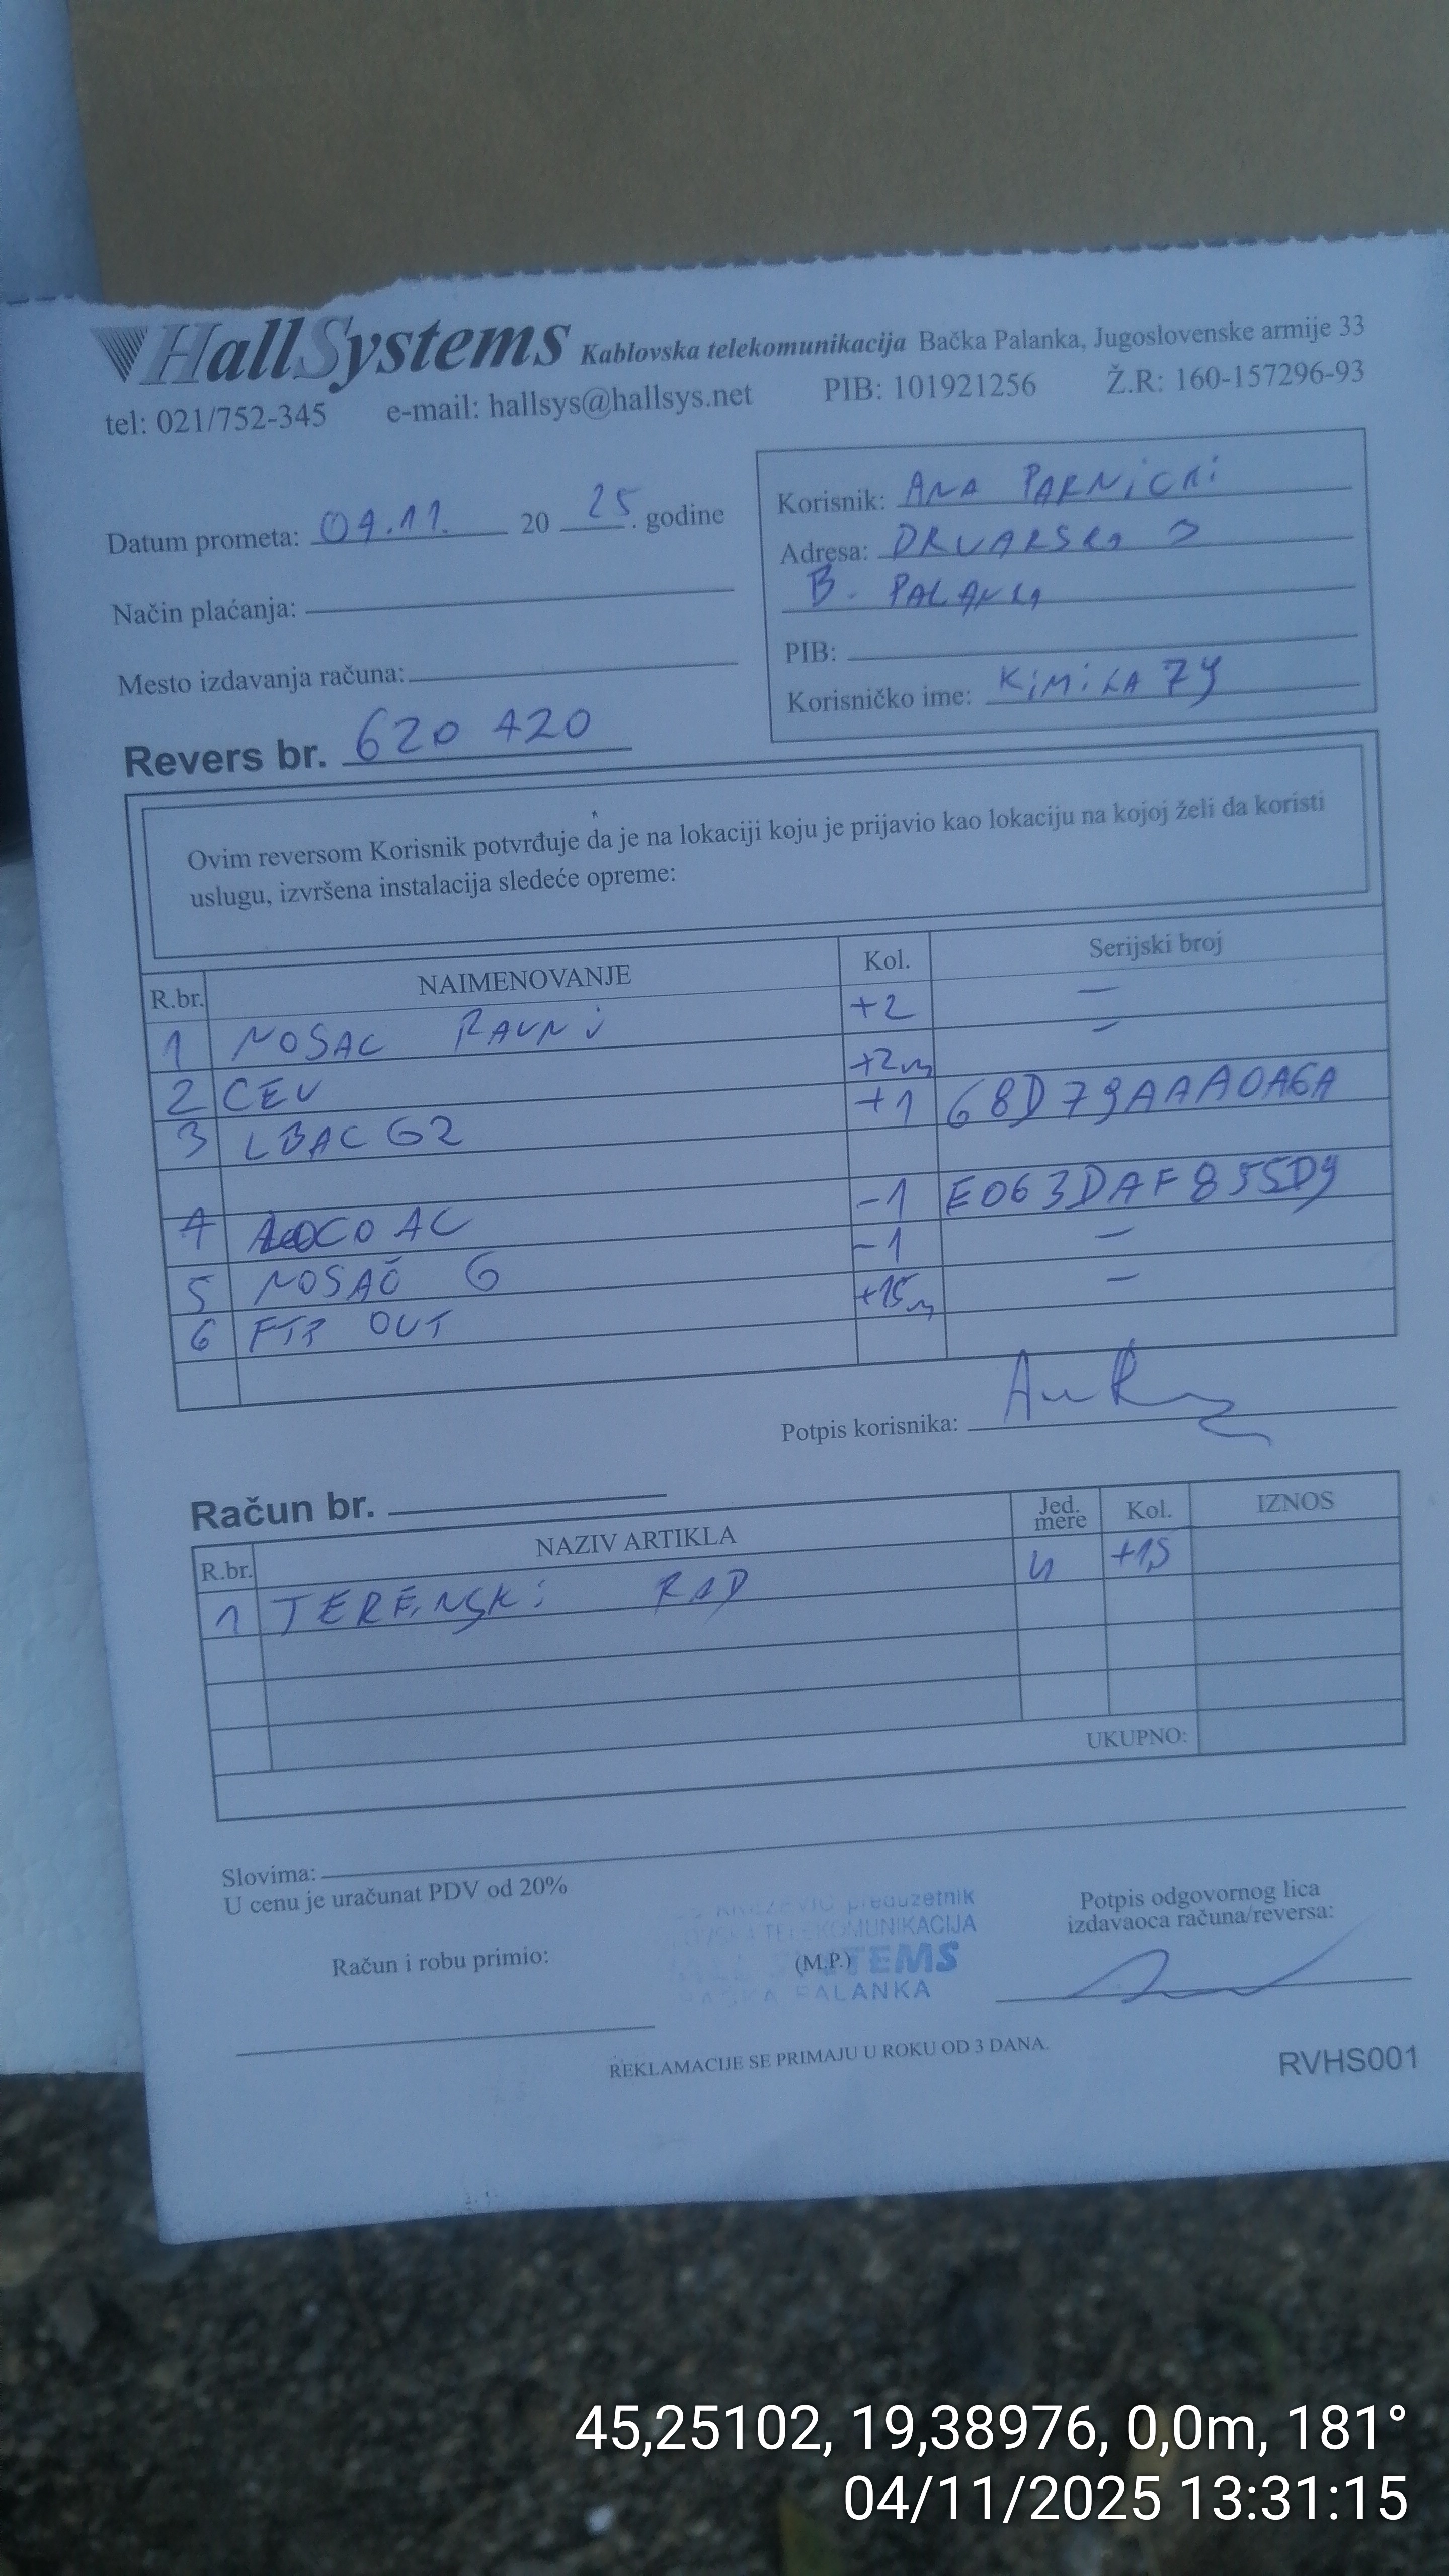 HallSystems Kablovska telekomunikacija Bačka Palanka, Jugoslovenske armije 33
tel: 021/752-345 e-mail: hallsys@hallsys.net PIB: 101921256 Ž.R: 160-157296-93
Datum prometa: 04.11. 20 25. godine
Način plaćanja:
Mesto izdavanja računa:
Korisnik: ANA PARNiCKi
Adresa: DRVARSKA
B. PALANKA
PIB:
Korisničko ime: KiMiKA79
Revers br. 620 420
Ovim reversom Korisnik potvrđuje da je na lokaciji koju je prijavio kao lokaciju na kojoj želi da koristi
uslugu, izvršena instalacija sledeće opreme:
R.br. NAIMENOVANJE Kol. Serijski broj
1 NOSAC RAVNi +2 –
2 CEV +2m –
3 LBAC G2 +1 68D79AAA0A6A
4 LOCO AC -1 E063DAF855D9
5 NOSAČ G -1 –
6 FTP OUT +15m –
Potpis korisnika:
Račun br.
R.br. NAZIV ARTIKLA Jed. mere Kol. IZNOS
1 TERENSKi RAD h +1,5
UKUPNO:
Slovima:
U cenu je uračunat PDV od 20%
Račun i robu primio:
preduzetnik
TELEKOMUNIKACIJA
(M.P.)
PALANKA
Potpis odgovornog lica
izdavaoca računa/reversa:
REKLAMACIJE SE PRIMAJU U ROKU OD 3 DANA.
RVHS001
45,25102, 19,38976, 0,0m, 181°
04/11/2025 13:31:15